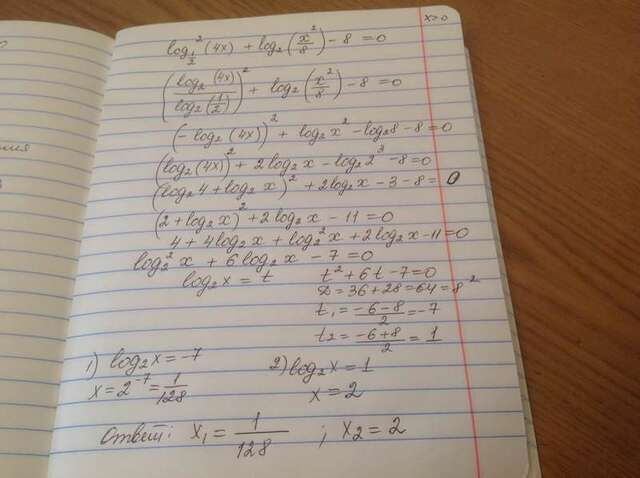 x>0
log²_{1/2}(4x) + log₂(x²/8) - 8 = 0
(log₂(4x)/log₂(1/2))² + log₂(x²/8) - 8 = 0
(-log₂(4x))² + log₂x² - log₂8 - 8 = 0
(log₂(4x))² + 2log₂x - log₂2³ - 8 = 0
(log₂4 + log₂x)² + 2log₂x - 3 - 8 = 0
(2 + log₂x)² + 2log₂x - 11 = 0
4 + 4log₂x + log₂²x + 2log₂x - 11 = 0
log₂²x + 6log₂x - 7 = 0
log₂x = t
t² + 6t - 7 = 0
D = 36 + 28 = 64 = 8²
t₁ = (-6-8)/2 = -7
t₂ = (-6+8)/2 = 1
1) log₂x = -7
x = 2⁻⁷ = 1/128
2) log₂x = 1
x = 2
Ответ: x₁ = 1/128 ; x₂ = 2